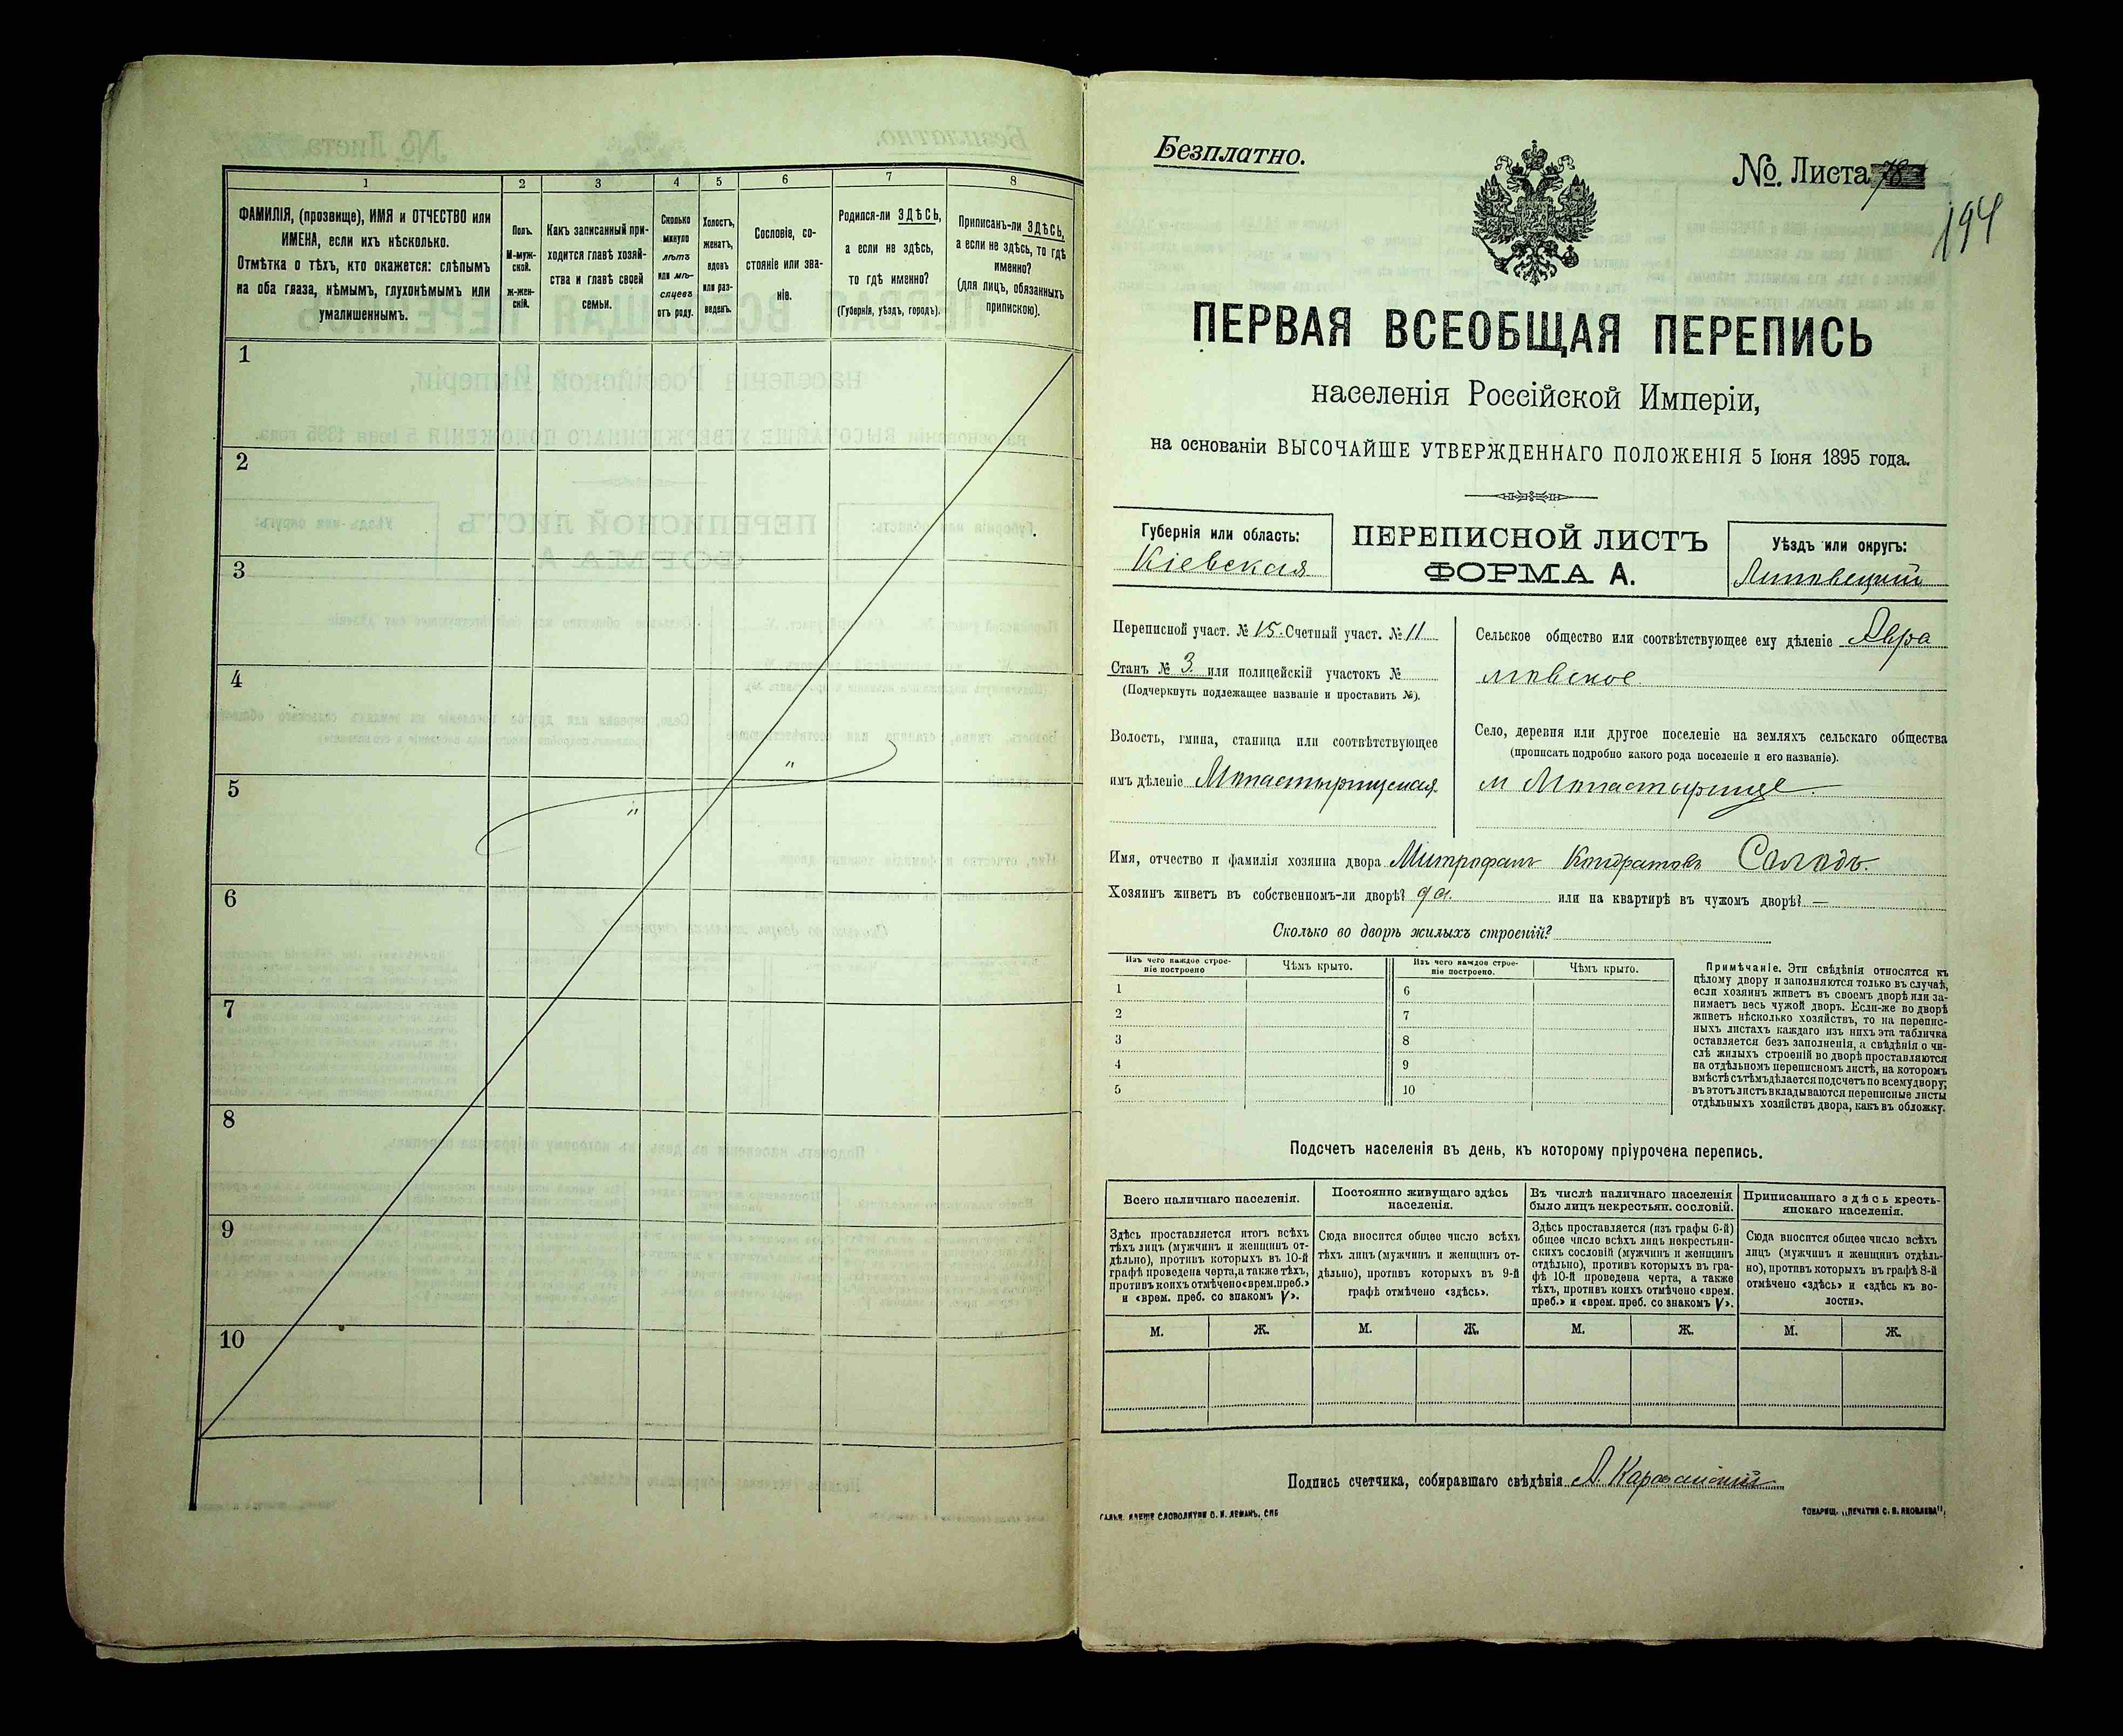 1
2
3
4
5
6
7
8
ФАМИЛІЯ, (прозвище), ИМЯ и ОТЧЕСТВО или
ИМЕНА, если ихъ нѣсколько.
Отмѣтка о тѣхъ, кто окажется: слѣпымъ
на оба глаза, нѣмымъ, глухонѣмымъ или
умалишеннымъ.
Полъ.
М-муж-
ской.
ж-жен-
скій.
Какъ записанный при-
ходится главѣ хозяй-
ства и главѣ своей
семьи.
Сколько
минуло
лѣтъ
или мѣ-
сяцевъ
отъ роду.
Холостъ,
женатъ,
вдовъ
или раз-
веденъ.
Сословіе, со-
стояніе или зва-
ніе.
Родился-ли ЗДѢСЬ,
а если не здѣсь,
то гдѣ именно?
(Губернія, уѣздъ, городъ).
Приписанъ-ли ЗДѢСЬ,
а если не здѣсь, то гдѣ
именно?
(для лицъ, обязанныхъ
припискою).
1
2
3
4
5
6
7
8
9
10
Безплатно.
№. Листа 78
194
ПЕРВАЯ ВСЕОБЩАЯ ПЕРЕПИСЬ
населенія Россійской Имперіи,
на основаніи ВЫСОЧАЙШЕ УТВЕРЖДЕННАГО ПОЛОЖЕНІЯ 5 Іюня 1895 года.
Губернія или область:
Кіевская
ПЕРЕПИСНОЙ ЛИСТЪ
ФОРМА А.
Уѣздъ или округъ:
Липовецкій
Переписной участ. № 15. Счетный участ. № 11
Станъ № 3 или полицейскій участокъ №
(Подчеркнуть подлежащее названіе и проставить №).
Волость, гмина, станица или соотвѣтствующее
имъ дѣленіе Монастырищская
Сельское общество или соотвѣтствующее ему дѣленіе Авра
мовское
Село, деревня или другое поселеніе на земляхъ сельскаго общества
(прописать подробно какого рода поселеніе и его названіе).
м Монастырище.
Имя, отчество и фамилія хозяина двора Митрофанъ Кондратовъ Солодъ.
Хозяинъ живетъ въ собственномъ-ли дворѣ? да. или на квартирѣ въ чужомъ дворѣ? —
Сколько во дворѣ жилыхъ строеній?
Изъ чего каждое строе-
ніе построено
Чѣмъ крыто.
Изъ чего каждое строе-
ніе построено.
Чѣмъ крыто.
1
2
3
4
5
6
7
8
9
10
Примѣчаніе. Эти свѣдѣнія относятся къ
цѣлому двору и заполняются только въ случаѣ,
если хозяинъ живетъ въ своемъ дворѣ или за-
нимаетъ весь чужой дворъ. Если-же во дворѣ
живетъ нѣсколько хозяйствъ, то на перепис-
ныхъ листахъ каждаго изъ нихъ эта табличка
оставляется безъ заполненія, а свѣдѣнія о чи-
слѣ жилыхъ строеній во дворѣ проставляются
на отдѣльномъ переписномъ листѣ, на которомъ
вмѣстѣ съ тѣмъ дѣлается подсчетъ по всему двору;
въ этотъ листъ вкладываются переписные листы
отдѣльныхъ хозяйствъ двора, какъ въ обложку.
Подсчетъ населенія въ день, къ которому пріурочена перепись.
Всего наличнаго населенія.
Постоянно живущаго здѣсь
населенія.
Въ числѣ наличнаго населенія
было лицъ некрестьян. сословій.
Приписаннаго здѣсь кресть-
янскаго населенія.
Здѣсь проставляется итогъ всѣхъ
тѣхъ лицъ (мужчинъ и женщинъ от-
дѣльно), противъ которыхъ въ 10-й
графѣ проведена черта, а также тѣхъ,
противъ коихъ отмѣчено «врем. преб.»
и «врем. преб. со знакомъ V».
Сюда вносится общее число всѣхъ
тѣхъ лицъ (мужчинъ и женщинъ от-
дѣльно), противъ которыхъ въ 9-й
графѣ отмѣчено «здѣсь».
Здѣсь проставляется (изъ графы 6-й)
общее число всѣхъ лицъ некрестьян-
скихъ сословій (мужчинъ и женщинъ
отдѣльно), противъ которыхъ въ гра-
фѣ 10-й проведена черта, а также
тѣхъ, противъ коихъ отмѣчено «врем.
преб.» и «врем. преб. со знакомъ V».
Сюда вносится общее число всѣхъ
лицъ (мужчинъ и женщинъ отдѣль-
но), противъ которыхъ въ графѣ 8-й
отмѣчено «здѣсь» и «здѣсь къ во-
лости».
М. Ж. М. Ж. М. Ж. М. Ж.
Подпись счетчика, собиравшаго свѣдѣнія А.
СЛОВОЛИТНИ О. И. ЛЕМАНЪ, СПБ
ТОВАРИЩ. „ПЕЧАТНЯ С. П. ЯКОВЛЕВА“,